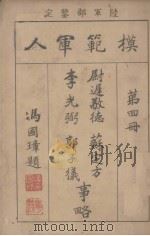 陸軍部鑒定
模範軍人
第四冊
尉遲敬德 蘇定方
李光弼 郭子儀
事略
馮國璋題